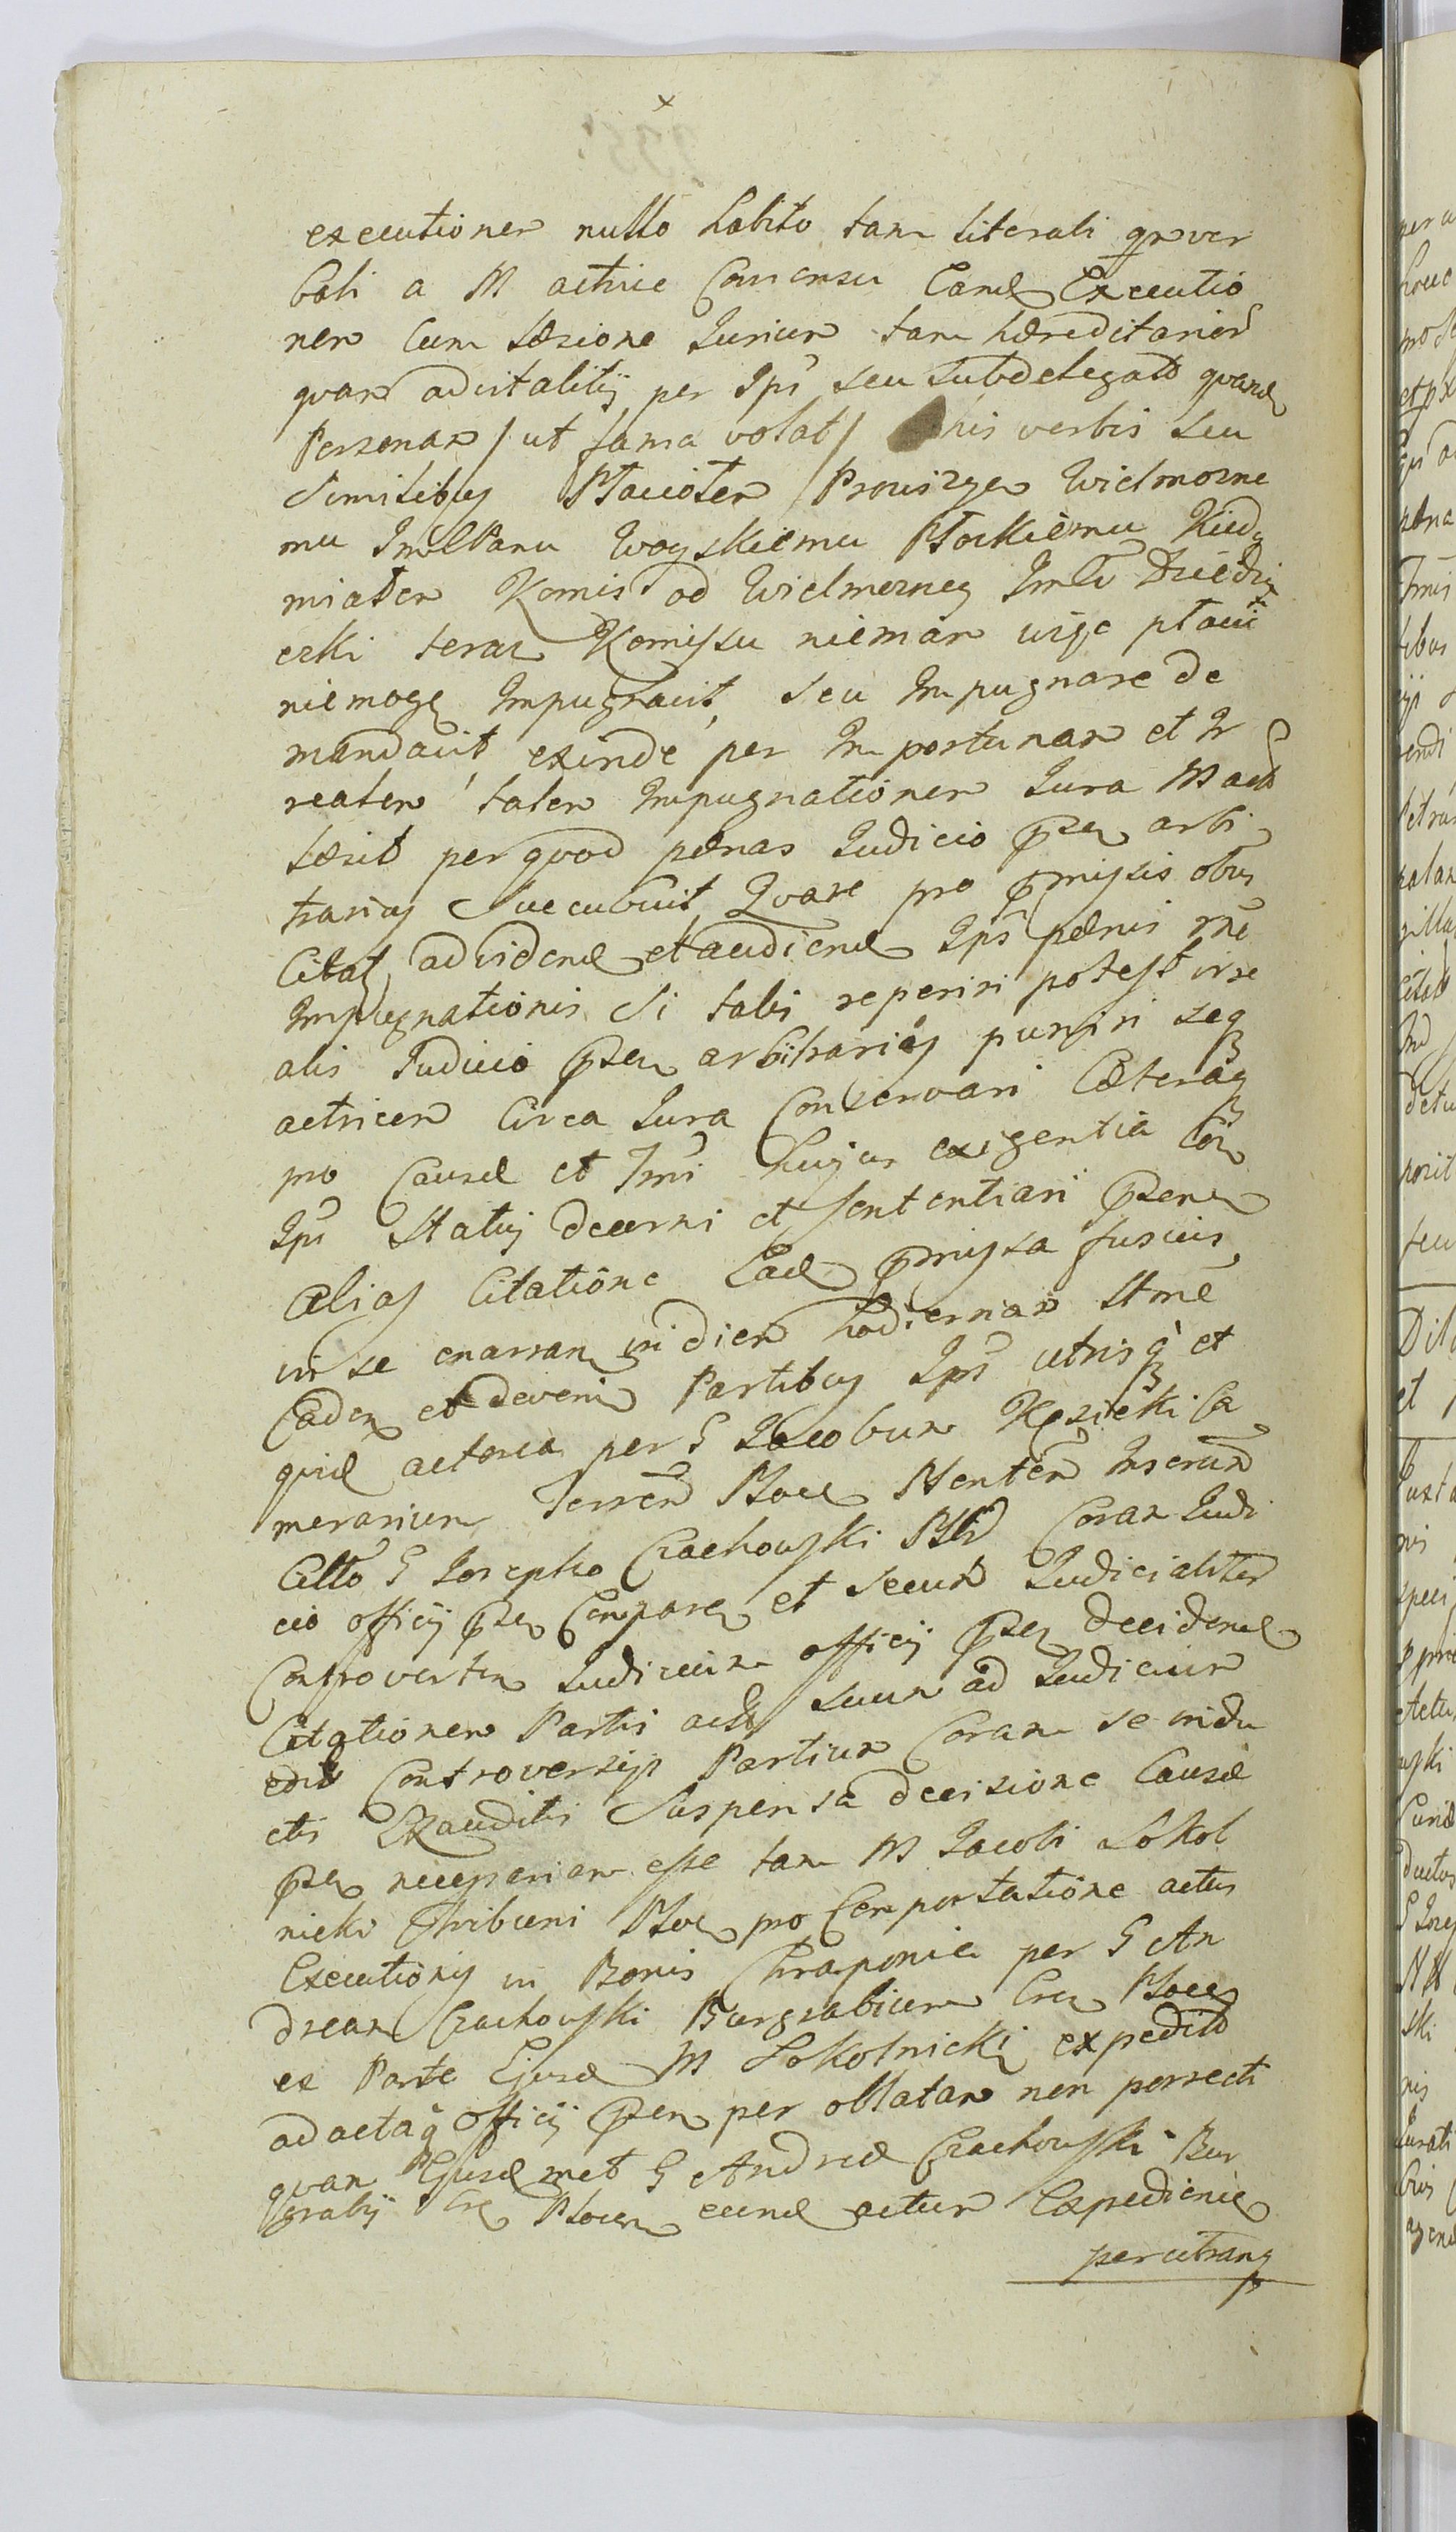 executionem nullo habito tam literali qm ver
bali a M actrice Consensu Eand Executio
nem Cum læsione Jurium tam hæreditarior
quam advitality per Ips seu Subdelegat quand
Personam / ut fama volat / his verbis seu
Similibus Płaciołem Prowizye Wielmozne
mu Jm Panu Woyskiemu Płockiemu Kiedy
miałem Komis od Wielmozney Jmci Dziedzi
czki teraz Komissu niemam więc płacić
niemogę Impugnavit, seu Impugnare de
mandavit, exinde per Importunam et Ir
realem talem Impugnationem Jura M act
læsit per quod pænas Judicio psen arbi
trarias Succubuit, Quare pro pmissis obus
Citat, advidend et audiend Ips pænis rne
Impugnationis Si talis reperiri potest irre
alis Judicio psen arbitrarias puniri seq
actricem Circa Jura Conservari Cæteraq
pro Causæ et Tmi hujus exigentia Cor
Ips Statuy decerni et sententiari psens
Alias Citatione Ead pmissa fusius
in se enarran in diem hodiernam Stme
Caden et deveni Partibus Ips utrisq et
quid actorea per G Jacobum Kęsicki Ca
merarium Terren Ploc Plenten Inserun
Citto G Josepho Czachowski Plō Coram Judi
cio officij psen Comparen et Secum Judicialiter
Controverten Judicium officij psen decidend
Citationem Partis act suum ad Judicium
edit Controversijs Partium Coram se indu
ctis Exauditis Suspensa decisione Causæ
psen necessariam esse tam M Jacobi Sokol
nicki Tribuni Ploc pro Comportatione actus
Executionis in Bonis Chraponia per G An
dream Czachowski Burgrabium Cren Ploce
ex Parte Ejusd M Sokolnicki expedit
ad actaq Officij psen per oblatam non porrecti
quam Ejusdmet G Andreæ Czachowski Bur
grabij Cre Plocen eund actum Expedienie
per utramq